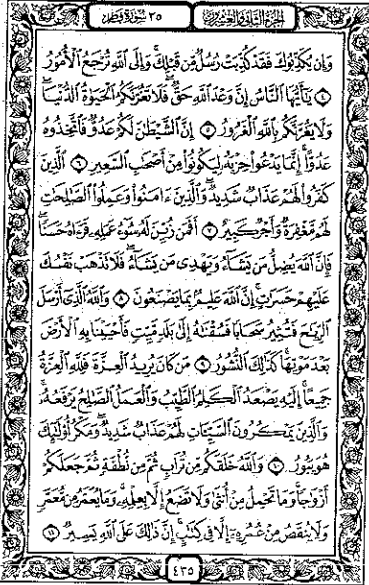 الجزء الثاني والعشرون ٣٥ سورة فاطر
وَإِن يُكَذِّبُوكَ فَقَدْ كُذِّبَتْ رُسُلٌ مِّن قَبْلِكَ ۚ وَإِلَى ٱللَّهِ تُرْجَعُ ٱلْأُمُورُ
٤ يَـٰٓأَيُّهَا ٱلنَّاسُ إِنَّ وَعْدَ ٱللَّهِ حَقٌّ ۖ فَلَا تَغُرَّنَّكُمُ ٱلْحَيَوٰةُ ٱلدُّنْيَا ۖ
وَلَا يَغُرَّنَّكُم بِٱللَّهِ ٱلْغَرُورُ ٥ إِنَّ ٱلشَّيْطَـٰنَ لَكُمْ عَدُوٌّ فَٱتَّخِذُوهُ
عَدُوًّا ۚ إِنَّمَا يَدْعُوا۟ حِزْبَهُۥ لِيَكُونُوا۟ مِنْ أَصْحَـٰبِ ٱلسَّعِيرِ ٦ ٱلَّذِينَ
كَفَرُوا۟ لَهُمْ عَذَابٌ شَدِيدٌ ۖ وَٱلَّذِينَ ءَامَنُوا۟ وَعَمِلُوا۟ ٱلصَّـٰلِحَـٰتِ
لَهُم مَّغْفِرَةٌ وَأَجْرٌ كَبِيرٌ ٧ أَفَمَن زُيِّنَ لَهُۥ سُوٓءُ عَمَلِهِۦ فَرَءَاهُ حَسَنًا ۖ
فَإِنَّ ٱللَّهَ يُضِلُّ مَن يَشَآءُ وَيَهْدِى مَن يَشَآءُ ۖ فَلَا تَذْهَبْ نَفْسُكَ
عَلَيْهِمْ حَسَرَٰتٍ ۚ إِنَّ ٱللَّهَ عَلِيمٌۢ بِمَا يَصْنَعُونَ ٨ وَٱللَّهُ ٱلَّذِىٓ أَرْسَلَ
ٱلرِّيَـٰحَ فَتُثِيرُ سَحَابًا فَسُقْنَـٰهُ إِلَىٰ بَلَدٍ مَّيِّتٍ فَأَحْيَيْنَا بِهِ ٱلْأَرْضَ
بَعْدَ مَوْتِهَا ۚ كَذَٰلِكَ ٱلنُّشُورُ ٩ مَن كَانَ يُرِيدُ ٱلْعِزَّةَ فَلِلَّهِ ٱلْعِزَّةُ
جَمِيعًا ۚ إِلَيْهِ يَصْعَدُ ٱلْكَلِمُ ٱلطَّيِّبُ وَٱلْعَمَلُ ٱلصَّـٰلِحُ يَرْفَعُهُۥ ۚ
وَٱلَّذِينَ يَمْكُرُونَ ٱلسَّيِّـَٔاتِ لَهُمْ عَذَابٌ شَدِيدٌ ۖ وَمَكْرُ أُو۟لَـٰٓئِكَ
هُوَ يَبُورُ ١٠ وَٱللَّهُ خَلَقَكُم مِّن تُرَابٍ ثُمَّ مِن نُّطْفَةٍ ثُمَّ جَعَلَكُمْ
أَزْوَٰجًا ۚ وَمَا تَحْمِلُ مِنْ أُنثَىٰ وَلَا تَضَعُ إِلَّا بِعِلْمِهِۦ ۚ وَمَا يُعَمَّرُ مِن مُّعَمَّرٍ
وَلَا يُنقَصُ مِنْ عُمُرِهِۦٓ إِلَّا فِى كِتَـٰبٍ ۚ إِنَّ ذَٰلِكَ عَلَى ٱللَّهِ يَسِيرٌ ١١
٤٣٥